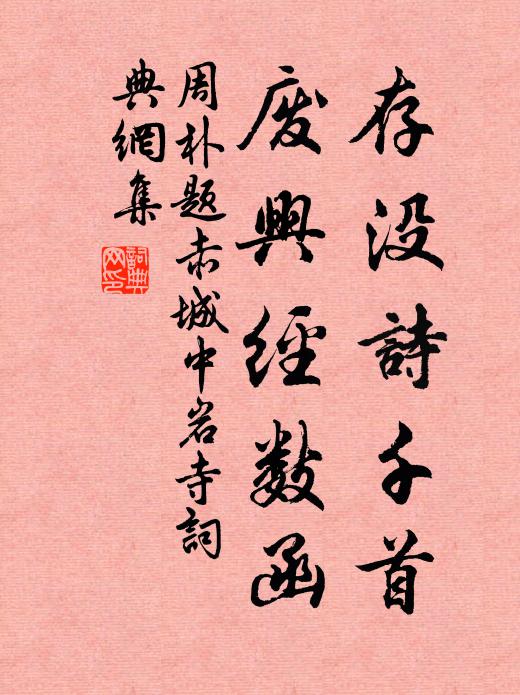 存没詩千首
废興經数函
周朴題赤城中岩寺詞
典網集
詞典网印